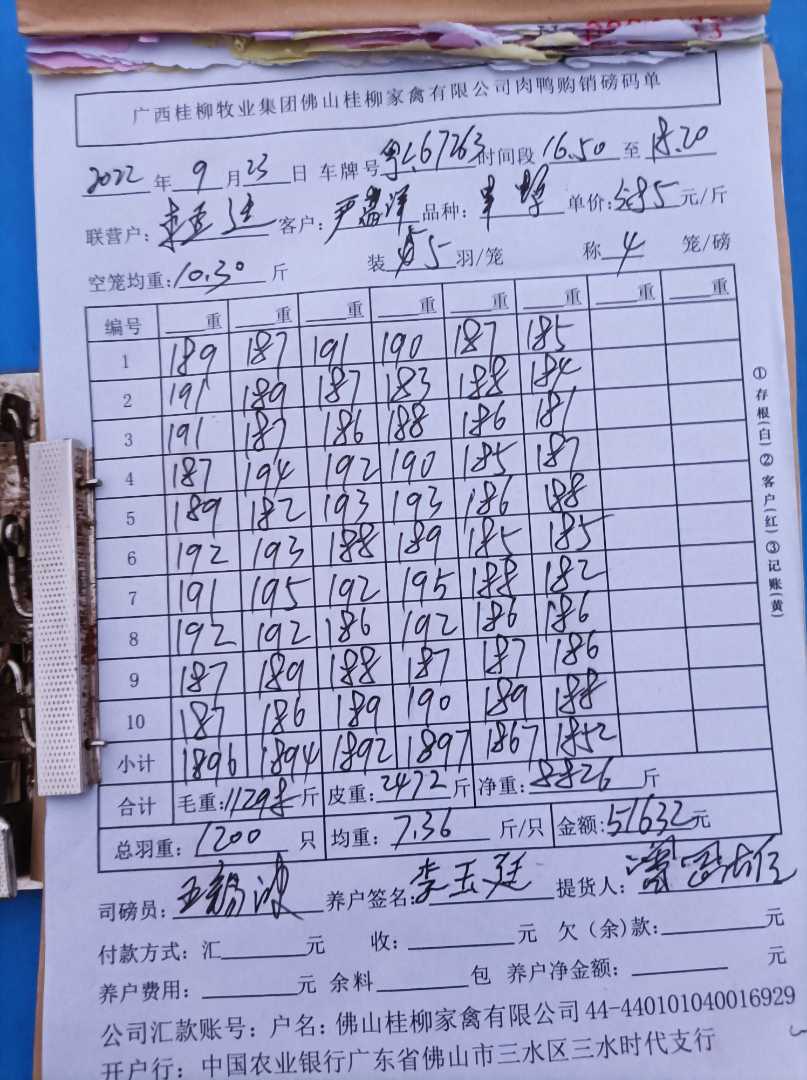 广西桂柳牧业集团佛山桂柳家禽有限公司肉鸭购销磅码单
2022 年 9 月 23 日 车牌号 67263 时间段 16.50 至 18.20
联营户: 客户: 严 品种: 单价: 5.85 元/斤
空笼均重: 10.30 斤 装 5 羽/笼 称 4 笼/磅
编号 重 重 重 重 重 重 重 重
1 189 187 191 190 187 185
2 191 189 187 183 188 184
3 191 187 186 188 186 181
4 187 194 192 190 185 187
5 189 182 193 193 186 188
6 192 193 188 189 185 185
7 191 195 192 195 188 182
8 192 192 186 192 186 186
9 187 189 188 187 187 186
10 187 186 189 190 189 188
小计 1896 1894 1892 1897 1867 1852
合计 毛重: 11298 斤 皮重: 2472 斤 净重: 8826 斤
总羽重: 1200 只 均重: 7.36 斤/只 金额: 51632 元
司磅员: 王锡波 养户签名: 李玉廷 提货人:
付款方式: 汇 元 收: 元 欠（余）款: 元
养户费用: 元 余料 包 养户净金额: 元
公司汇款账号: 户名: 佛山桂柳家禽有限公司 44-440101040016929
开户行: 中国农业银行广东省佛山市三水区三水时代支行
①存根(白)②客户(红)③记账(黄)